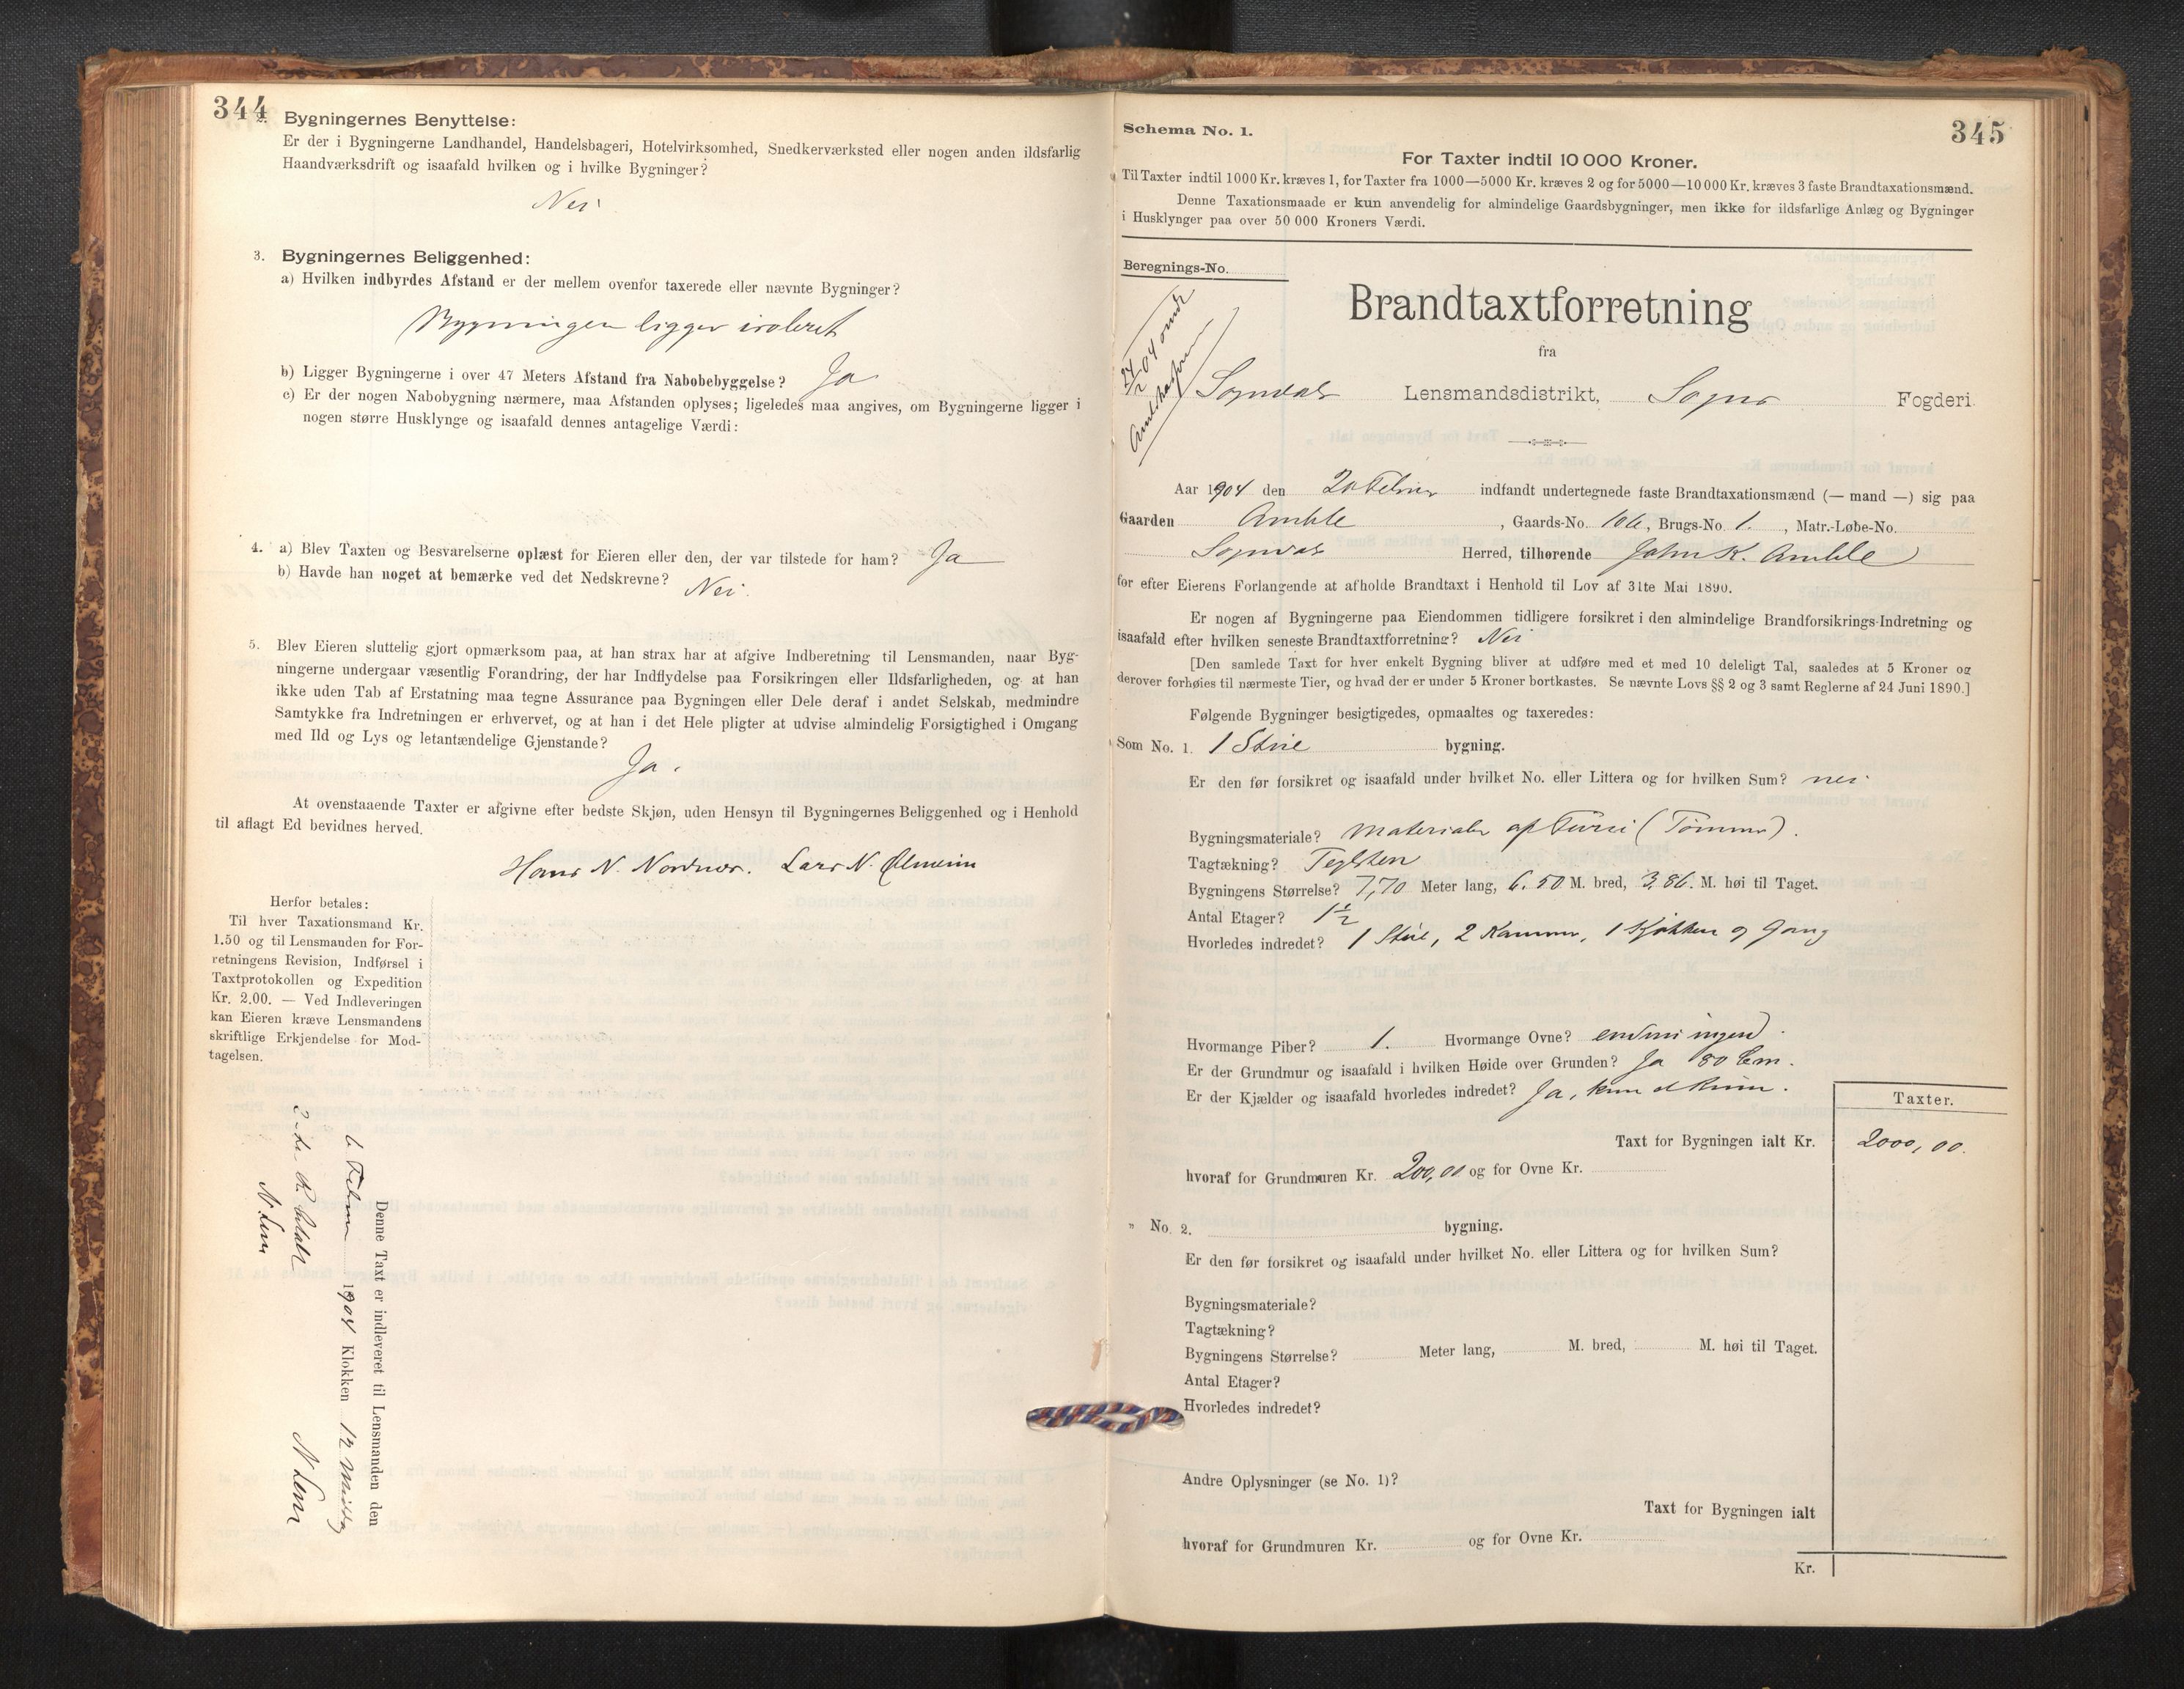 344
Bygningernes Benyttelse:
Er der i Bygningerne Landhandel, Handelsbageri, Hotelvirksomhed, Snedkerværksted eller nogen anden ildsfarlig
Haandværksdrift og isaafald hvilken og i hvilke Bygninger?
Nei
3. Bygningernes Beliggenhed:
a) Hvilken indbyrdes Afstand er der mellem ovenfor taxerede eller nævnte Bygninger?
Bygningen ligger isoleret
b) Ligger Bygningerne i over 47 Meters Afstand fra Nabobebyggelse? Ja
c) Er der nogen Nabobygning nærmere, maa Afstanden oplyses; ligeledes maa angives, om Bygningerne ligger i
nogen større Husklynge og isaafald dennes antagelige Værdi:
4. a) Blev Taxten og Besvarelserne oplæst for Eieren eller den, der var tilstede for ham? Ja
b) Havde han noget at bemærke ved det Nedskrevne? Nei.
5. Blev Eieren sluttelig gjort opmærksom paa, at han strax har at afgive Indberetning til Lensmanden, naar Byg-
ningerne undergaar væsentlig Forandring, der har Indflydelse paa Forsikringen eller Ildsfarligheden, og at han
ikke uden Tab af Erstatning maa tegne Assurance paa Bygningen eller Dele deraf i andet Selskab, medmindre
Samtykke fra Indretningen er erhvervet, og at han i det Hele pligter at udvise almindelig Forsigtighed i Omgang
med Ild og Lys og letantændelige Gjenstande?
Ja.
At ovenstaaende Taxter er afgivne efter bedste Skjøn, uden Hensyn til Bygningernes Beliggenhed og i Henhold
til aflagt Ed bevidnes herved.
Hans N. Nordnes. Lars N.
Herfor betales:
Til hver Taxationsmand Kr.
1.50 og til Lensmanden for For-
retningens Revision, Indførsel i
Taxtprotokollen og Expedition
Kr. 2.00. — Ved Indleveringen
kan Eieren kræve Lensmandens
skriftlige Erkjendelse for Mod-
tagelsen.
Denne Taxt er indleveret til Lensmanden den
6 Februar 1904 Klokken 12 Middag
N Lem
betalt
N Lem
345
Schema No. 1.
For Taxter indtil 10 000 Kroner.
Til Taxter indtil 1000 Kr. kræves 1, for Taxter fra 1000—5000 Kr. kræves 2 og for 5000—10 000 Kr. kræves 3 faste Brandtaxationsmænd.
Denne Taxationsmaade er kun anvendelig for almindelige Gaardsbygninger, men ikke for ildsfarlige Anlæg og Bygninger
i Husklynger paa over 50 000 Kroners Værdi.
Beregnings-No.
Brandtaxtforretning
fra
Sogndal Lensmandsdistrikt, Sogns Fogderi.
Aar 1904 den 2 Februar indfandt undertegnede faste Brandtaxationsmænd (— mand —) sig paa
Gaarden Amble, Gaards-No. 106, Brugs-No. 1., Matr.-Løbe-No.
Sogndal Herred, tilhørende John K. Amble
for efter Eierens Forlangende at afholde Brandtaxt i Henhold til Lov af 31te Mai 1890.
Er nogen af Bygningerne paa Eiendommen tidligere forsikret i den almindelige Brandforsikrings-Indretning og
isaafald efter hvilken seneste Brandtaxtforretning? Nei
[Den samlede Taxt for hver enkelt Bygning bliver at udføre med et med 10 deleligt Tal, saaledes at 5 Kroner og
derover forhøies til nærmeste Tier, og hvad der er under 5 Kroner bortkastes. Se nævnte Lovs §§ 2 og 3 samt Reglerne af 24 Juni 1890.]
Følgende Bygninger besigtigedes, opmaaltes og taxeredes:
Som No. 1. 1 Stue bygning.
Er den før forsikret og isaafald under hvilket No. eller Littera og for hvilken Sum? nei
Bygningsmateriale? Materialer af Furu (Tømmer).
Tagtækning? Teglsten
Bygningens Størrelse? 7,70 Meter lang, 6.50 M. bred, 3.86. M. høi til Taget.
Antal Etager? 1½
Hvorledes indredet? 1 Stue, 2 Kammer, 1 Kjøkken og Gang
Hvormange Piber? 1. Hvormange Ovne? endnu ingen.
Er der Grundmur og isaafald i hvilken Høide over Grunden? Ja 80 Cm.
Er der Kjælder og isaafald hvorledes indredet? Ja, kun et Rum.
Taxter.
Taxt for Bygningen ialt Kr. 2000,00.
hvoraf for Grundmuren Kr. 200,00 og for Ovne Kr.
" No. 2. bygning.
Er den før forsikret og isaafald under hvilket No. eller Littera og for hvilken Sum?
Bygningsmateriale?
Tagtækning?
Bygningens Størrelse? Meter lang, M. bred, M. høi til Taget.
Antal Etager?
Hvorledes indredet?
Andre Oplysninger (se No. 1)?
Taxt for Bygningen ialt
hvoraf for Grundmuren Kr. og for Ovne Kr.
Kr.